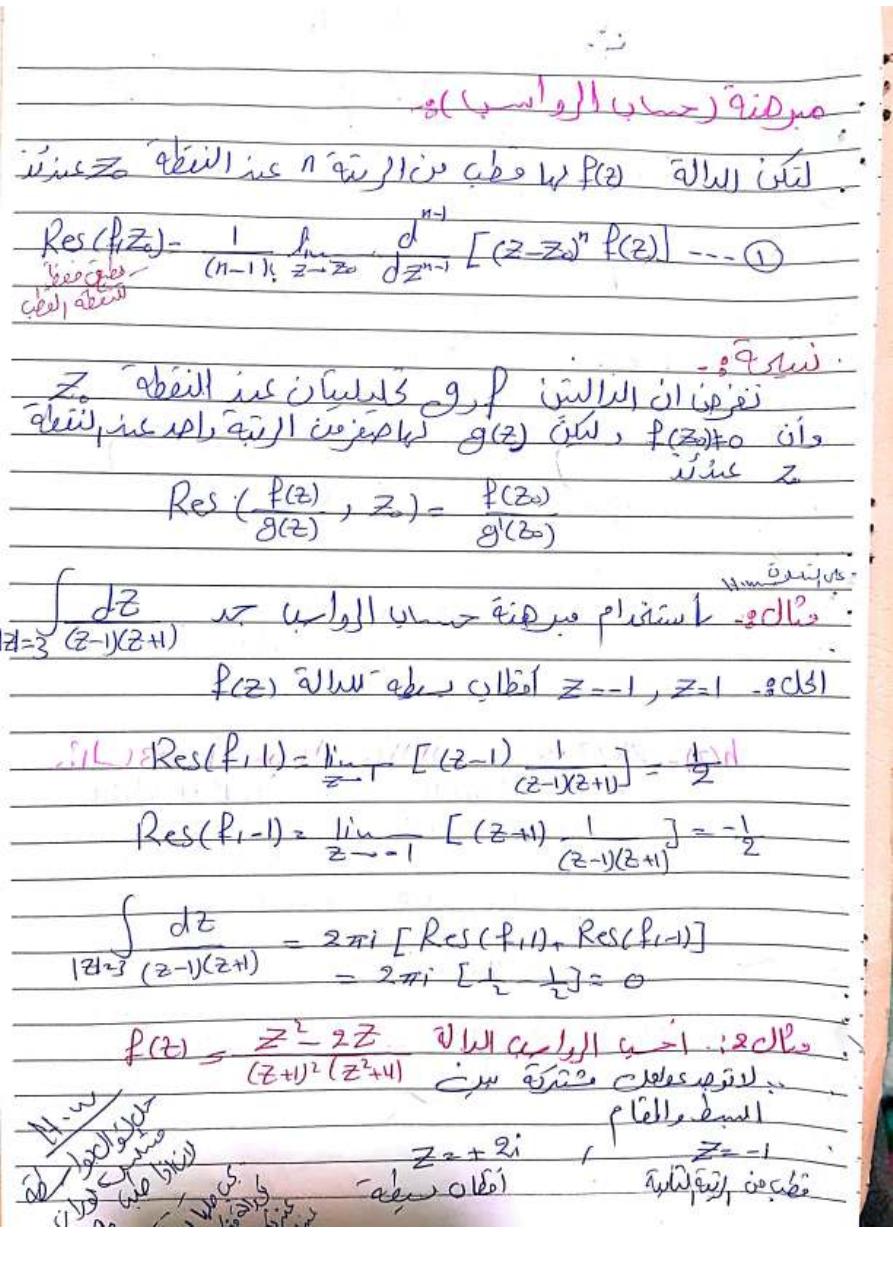 مبرهنة (حساب الرواسب):-
لتكن الدالة f(z) لها قطب من الرتبة n عند النقطة z₀ عندئذ
Res(f,z₀) = 1/(n-1)! lim z→z₀ d^(n-1)/dz^(n-1) [(z-z₀)^n f(z)] --- ①
نتيجة:-
نفرض ان الدالتين f و g تحليليتان عند النقطة z₀
وأن f(z₀)≠0 ولتكن g(z) لها صفر من الرتبة واحد عند النقطة
z₀ عندئذ
Res(f(z)/g(z), z₀) = f(z₀)/g'(z₀)
مثال:- بأستخدام مبرهنة حساب الرواسب جد ∫|z|=3 dz/((z-1)(z+1))
الحل:- z=1 , z=-1 أقطاب بسيطه للدالة f(z)
Res(f,1) = lim z→1 [(z-1) 1/((z-1)(z+1))] = 1/2
Res(f,-1) = lim z→-1 [(z+1) 1/((z-1)(z+1))] = -1/2
∫|z|=3 dz/((z-1)(z+1)) = 2πi [Res(f,1) + Res(f,-1)]
= 2πi [1/2 - 1/2] = 0
مثال2: احسب الرواسب للدالة f(z) = (z²-2z)/((z+1)²(z²+4))
لا توجد عوامل مشتركة بين
البسط والمقام
z=-1 , z=±2i
قطب من الرتبة الثانية أقطاب بسيطة
H.w